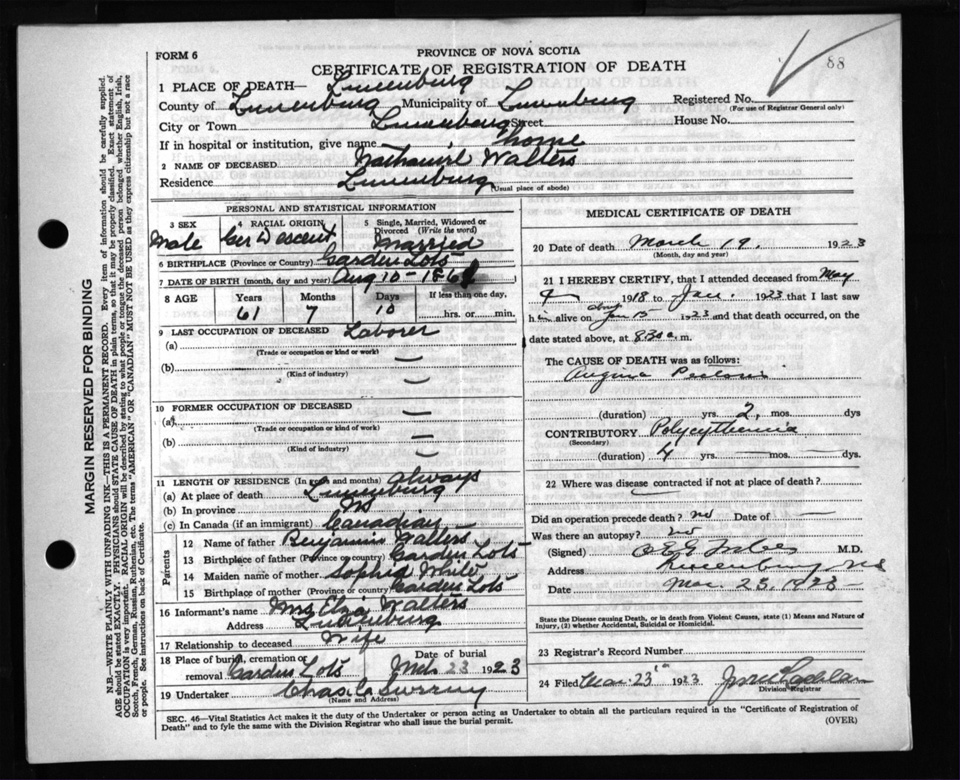 FORM 6
PROVINCE OF NOVA SCOTIA
CERTIFICATE OF REGISTRATION OF DEATH
88
1 PLACE OF DEATH— Lunenburg
County of Lunenburg Municipality of Lunenburg Registered No.
(For use of Registrar General only)
City or Town Lunenburg Street House No.
If in hospital or institution, give name home
2 NAME OF DECEASED Nathaniel Walters
Residence Lunenburg (Usual place of abode)
PERSONAL AND STATISTICAL INFORMATION
3 SEX Male
4 RACIAL ORIGIN Ger Descent
5 Single, Married, Widowed or Divorced (Write the word) Married
6 BIRTHPLACE (Province or Country) Garden Lots
7 DATE OF BIRTH (month, day and year) Aug 10 - 1861
8 AGE Years Months Days If less than one day,
61 7 10 hrs. or min.
9 LAST OCCUPATION OF DECEASED
(a) Laborer
(Trade or occupation or kind or work)
(b) —
(Kind of industry)
10 FORMER OCCUPATION OF DECEASED
(a) —
(Trade or occupation or kind of work)
(b) —
(Kind of industry)
11 LENGTH OF RESIDENCE (In years and months) always
(a) At place of death Lunenburg
(b) In province NS
(c) In Canada (if an immigrant) Canadian
Parents
12 Name of father Benjamin Walters
13 Birthplace of father (Province or country) Garden Lots
14 Maiden name of mother Sophia White
15 Birthplace of mother (Province or Country) Garden Lots
16 Informant's name Mrs Walters
Address Lunenburg
17 Relationship to deceased Wife
18 Place of burial, cremation or removal Garden Lots
Date of burial Mch 23 1923
19 Undertaker Chas
(Name and Address)
MEDICAL CERTIFICATE OF DEATH
20 Date of death March 19. 1923
(Month, day and year)
21 I HEREBY CERTIFY, that I attended deceased from May
1918 to Jan. 1923 that I last saw
h im alive on abt Jan 15 1923 and that death occurred, on
date stated above, at 8 30 a. m.
The CAUSE OF DEATH was as follows:
Angina Pectoris
(duration) yrs. 2, mos. dys
CONTRIBUTORY Polycythemia
(Secondary)
(duration) 4 yrs. — mos. — dys.
22 Where was disease contracted if not at place of death?
Did an operation precede death? no Date of —
Was there an autopsy? no
(Signed) M.D.
Address Lunenburg, NS
Date Mar. 23, 1923
State the Disease causing Death, or in death from Violent Causes, state (1) Means and Nature of
Injury, (2) whether Accidental, Suicidal or Homicidal.
23 Registrar's Record Number
24 Filed Mar 23rd 1923
Division Registrar
SEC. 46—Vital Statistics Act makes it the duty of the Undertaker or person acting as Undertaker to obtain all the particulars required in the "Certificate of Registration of
Death" and to fyle the same with the Division Registrar who shall issue the burial permit.
(OVER)
MARGIN RESERVED FOR BINDING
N.B.—WRITE PLAINLY WITH UNFADING INK—THIS IS A PERMANENT RECORD. Every item of information should be carefully supplied.
AGE should be stated EXACTLY. PHYSICIANS should STATE CAUSE OF DEATH in plain terms, so that it may be properly classified. Exact statement of
OCCUPATION is very important. RACIAL ORIGIN will be described by stating to what people or tongue the deceased person belonged, whether English, Irish,
Scotch, French, German, Russian, Ruthenian, etc. The terms "AMERICAN" or "CANADIAN" MUST NOT BE USED as they express citizenship but not a race
or people. See instructions on back of Certificate.